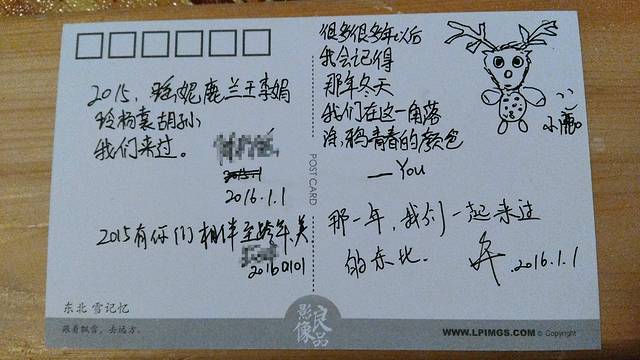 2015，骆妮鹿兰王李娟
玲杨袁胡孙
我们来过。
2016.1.1
2015有你们相伴至跨年，美
20160101
很多很多年以后
我会记得
那年冬天
我们在这一角落
青春的颜色
—You
小鹿
那一年，我们一起来过
的东北.
2016.1.1
POST CARD
东北 雪记忆
跟着飘雪，去远方。
影像良品
WWW.LPIMGS.COM © Copyright